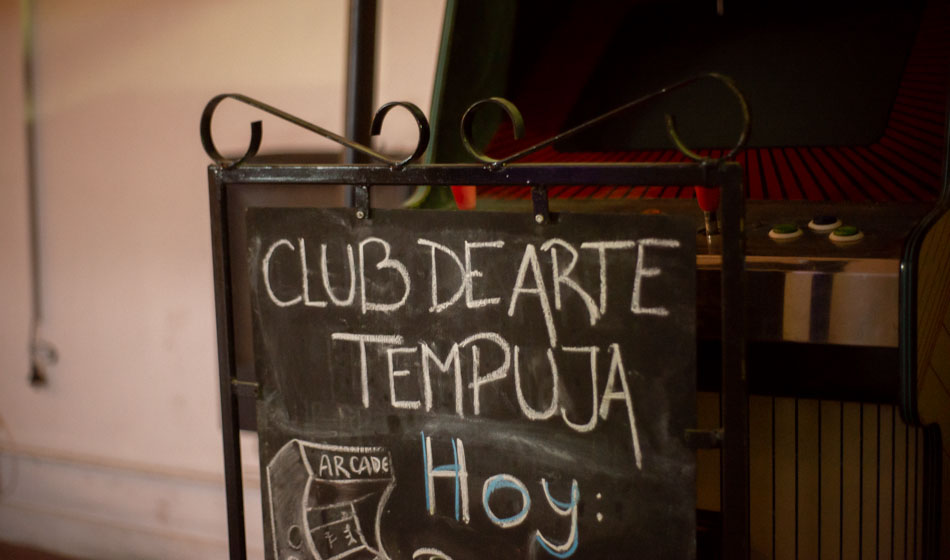 CLUB DE ARTE
TEMPUJA
ARCADE
Hoy: